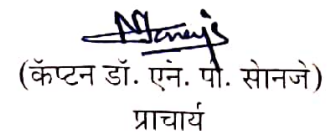 (कॅप्टन डॉ. एन. पी. सोनजे)
प्राचार्य